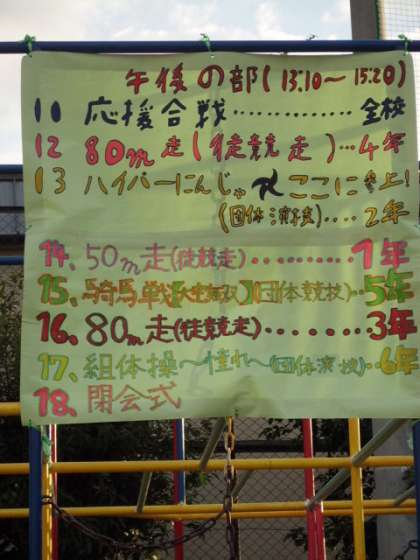 午後の部(13:10〜15:20)
11 応援合戦・・・・・・・・・・・全校
12 80m走(徒競走)・・・4年
13 ハイパーにんじゃ ここに参上!
(団体演技)・・・・2年
14、50m走(徒競走)・・・・・・・1年
15、騎馬戦 (団体競技)・・5年
16、80m走(徒競走)・・・・・・・3年
17、組体操〜憧れ〜(団体演技)・・6年
18、閉会式